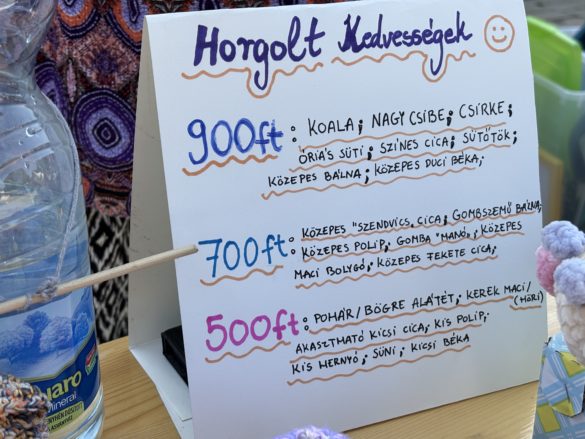 Horgolt Kedvességek
900ft: KOALA; NAGY CSIBE; CSIRKE;
ÓRIÁS SÜTI; SZÍNES CICA; SÜTŐTÖK;
KÖZEPES BÁLNA; KÖZEPES DUCI BÉKA;
700ft: KÖZEPES "SZENDVICS, CICA; GOMBSZEMŰ BÁLNA;
KÖZEPES POLIP; GOMBA "MANÓ"; KÖZEPES
MACI BOLYGÓ; KÖZEPES FEKETE CICA;
500ft: POHÁR/BÖGRE ALÁTÉT; KEREK MACI/
(HÖRI)
AKASZTHATÓ KICSI CICA; KIS POLIP;
KIS HERNYÓ; SÜNI; KICSI BÉKA
naro
Minerál